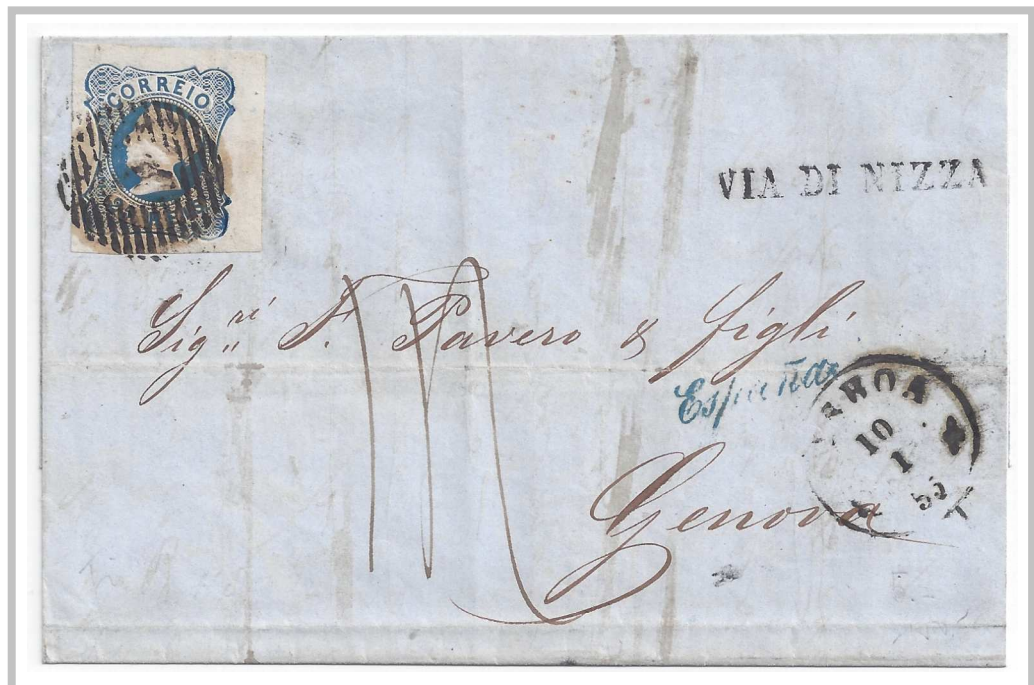 CORREIO
VIA DI NIZZA
Sig.ri F. Pavero & figli
España
10
1
Genova